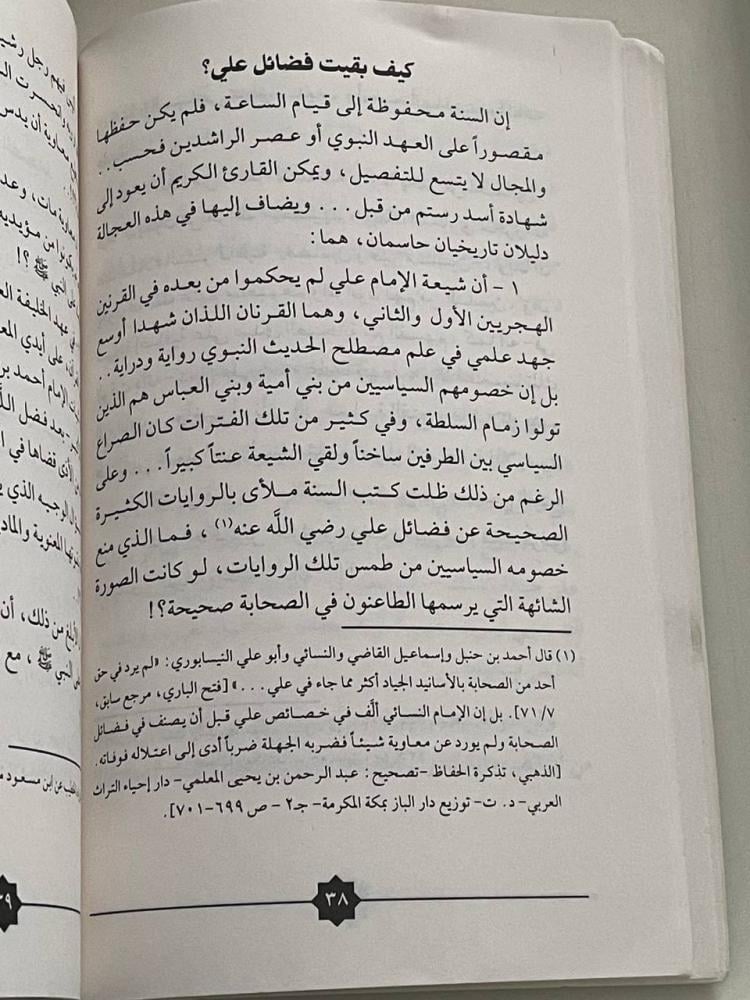 كيف بقيت فضائل علي؟
إن السنة محفوظة إلى قيام الساعة، فلم يكن حفظها
مقصوراً على العهد النبوي أو عصر الراشدين فحسب..
والمجال لا يتسع للتفصيل، ويمكن القارئ الكريم أن يعود إلى
شهادة أسد رستم من قبل... ويضاف إليها في هذه العجالة
دليلان تاريخيان حاسمان، هما:
١ - أن شيعة الإمام علي لم يحكموا من بعده في القرنين
الهجريين الأول والثاني، وهما القرنان اللذان شهدا أوسع
جهد علمي في علم مصطلح الحديث النبوي رواية ودراية..
بل إن خصومهم السياسيين من بني أمية وبني العباس هم الذين
تولوا زمام السلطة، وفي كثير من تلك الفترات كان الصراع
السياسي بين الطرفين ساخناً ولقي الشيعة عنتاً كبيراً... وعلى
الرغم من ذلك ظلت كتب السنة ملأى بالروايات الكثيرة
الصحيحة عن فضائل علي رضي اللَّه عنه(١)، فما الذي منع
خصومه السياسيين من طمس تلك الروايات، لو كانت الصورة
الشائهة التي يرسمها الطاعنون في الصحابة صحيحة؟!
(١) قال أحمد بن حنبل وإسماعيل القاضي والنسائي وأبو علي النيسابوري: «لم يرد في حق
أحد من الصحابة بالأسانيد الجياد أكثر مما جاء في علي...» [فتح الباري، مرجع سابق،
٧١/٧]. بل إن الإمام النسائي ألَّف في خصائص علي قبل أن يصنف في فضائل
الصحابة ولم يورد عن معاوية شيئاً فضربه الجهلة ضرباً أدى إلى اعتلاله فوفاته.
[الذهبي، تذكرة الحفاظ -تصحيح: عبد الرحمن بن يحيى المعلمي- دار إحياء التراث
العربي- د. ت- توزيع دار الباز بمكة المكرمة- جـ٢ - ص ٦٩٩-٧٠١].
٣٨
فيهم رجل
معاوية أن
معاوية مات، وعد
من مؤيديه
النبي ﷺ ؟!
في عهد الخليفة
على أيدي
الإمام أحمد بن
بعد فضل
قضاها في
الوجيه الذي
المعنوية
من ذلك، أن
النبي ﷺ، مع
عن ابن مسعود
٣٩